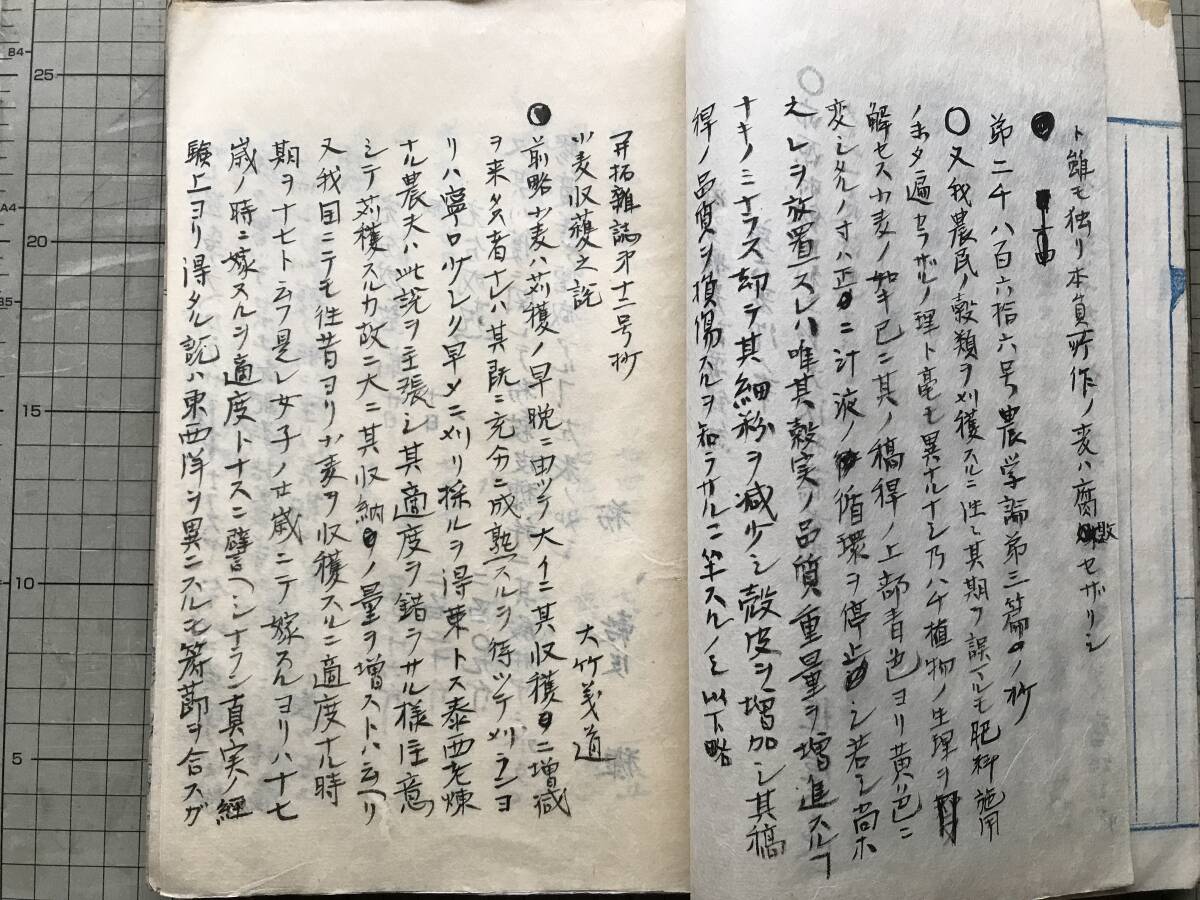 ト雖モ独リ本員所作ノ麦ハ腐敗セザリシ
第二千八百六拾六号農学論第三篇ノ抄
〇又我農民ノ穀類ヲ刈穫スルニ往々其期ヲ誤ルモ肥料施用
ノホタ遍セラザルノ理ト毫モ異ナルナシ乃ハチ植物ノ生理ヲ
解セス力麦ノ如キ已ニ其ノ稿稈ノ上部青色ヨリ黄色ニ
変シタルノ寸ハ正ニ汁液ノ循環ヲ停止シ若シ尚ホ
之レヲ放置スレハ唯其穀実ノ品質重量ヲ増進スルヿ
ナキノミナラス却テ其細粉ヲ減少シ殻皮ヲ増加シ其稿
稈ノ品質ヲ損傷スルヲ知ラサルニ坐スルノミ以下略
開拓雑誌第十二号抄
小麦収穫之説
大竹義道
前略小麦ハ苅穫ノ早晩ニ由ツテ大イニ其収穫ニ増減
ヲ来タス者ナレハ其既ニ充分ニ成熟スルヲ待ツテ刈ランヨ
リハ寧ロ少シク早メニ刈リ採ルヲ得策トス泰西老煉
ナル農夫ハ此説ヲ主張シ其適度ヲ錯ラサル様注意
シテ苅穫スルカ故ニ大ニ其収納ノ量ヲ増ストハ云ヘリ
又我国ニテモ往昔ヨリ小麦ヲ収穫スルニ適度ナル時
期ヲ十七ト云フ是レ女子ノ廿歳ニテ嫁スルヨリハ十七
歳ノ時ニ嫁スルヲ適度トナスニ譬ヘシナラン真実ノ経
験上ヨリ得タル説ハ東西洋ヲ異ニスルモ符節ヲ合スガ